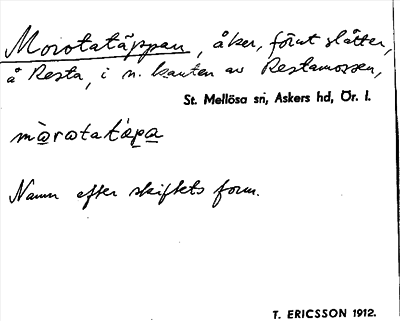 Morotatäppan, åker, förut slåtter,
å Resta, i n. kanten av Restamossen,
St. Mellösa sn, Askers hd, Ör. l.
mòrωtatápa
Namn efter skiftets form.
T. ERICSSON 1912.